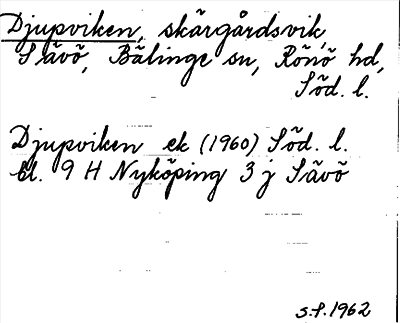 Djupviken, skärgårdsvik
Sävö, Bälinge sn, Rönö hd,
Söd. l.
Djupviken ek (1960) Söd. l.
bl. 9 H Nyköping 3 j Sävö
s.f. 1962